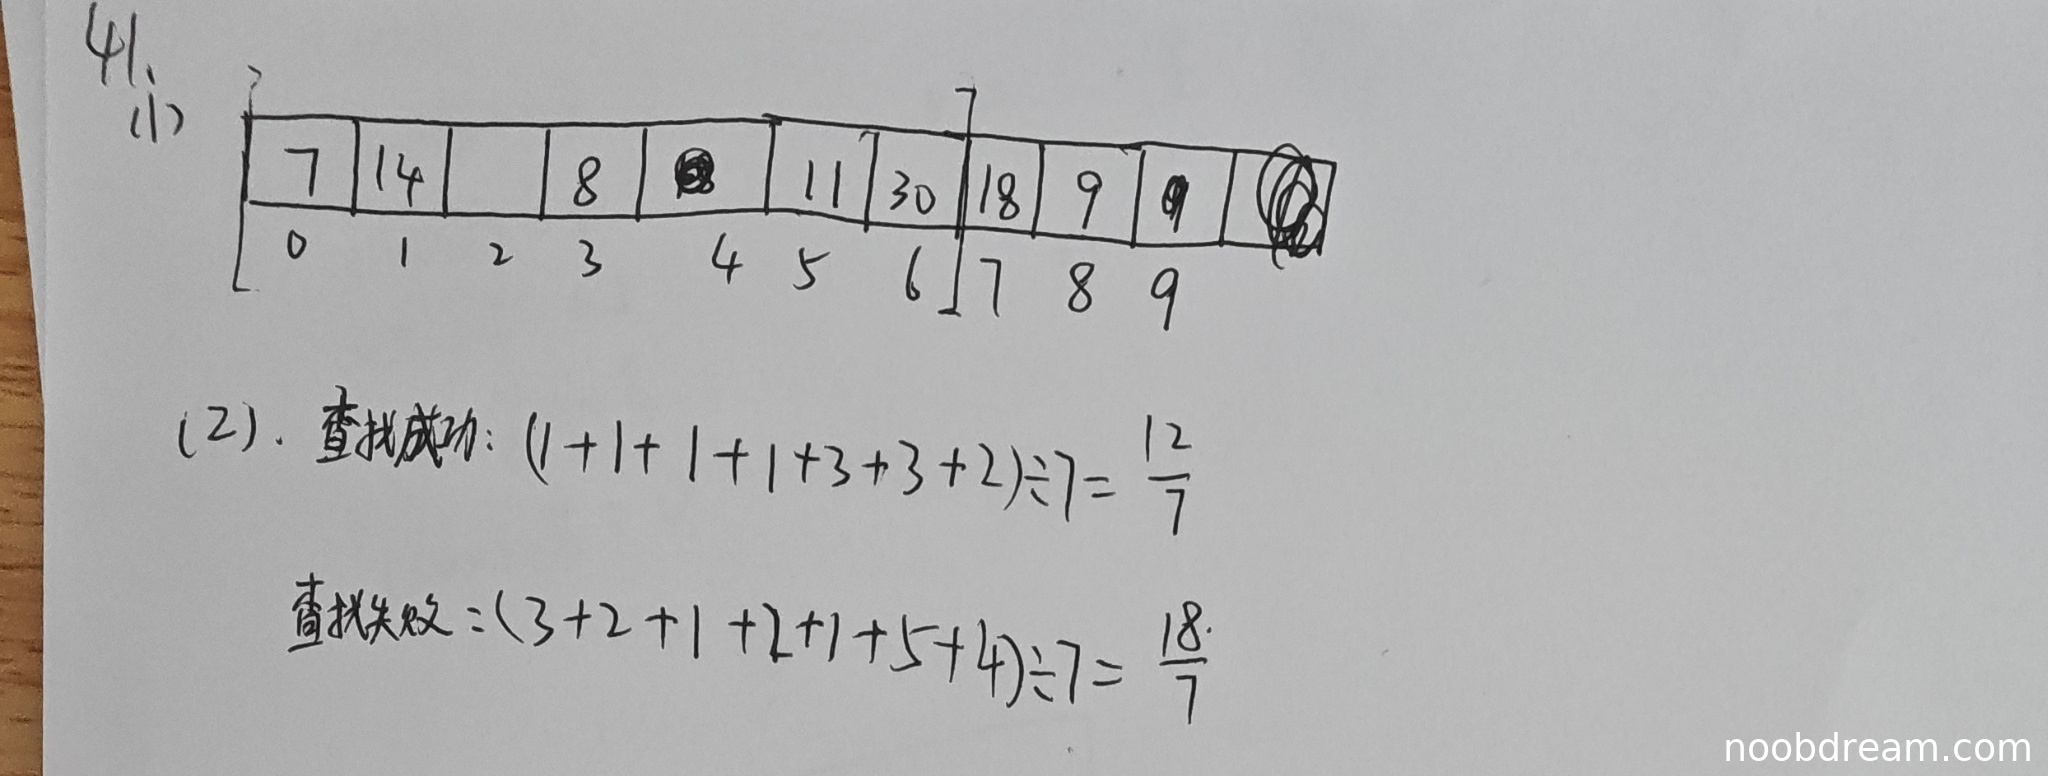 41.
(1)
7 14 8 11 30 18 9
0 1 2 3 4 5 6 7 8 9
(2). 查找成功: (1+1+1+1+3+3+2)÷7= 12/7
查找失败:(3+2+1+2+1+5+4)÷7= 18/7
noobdream.com